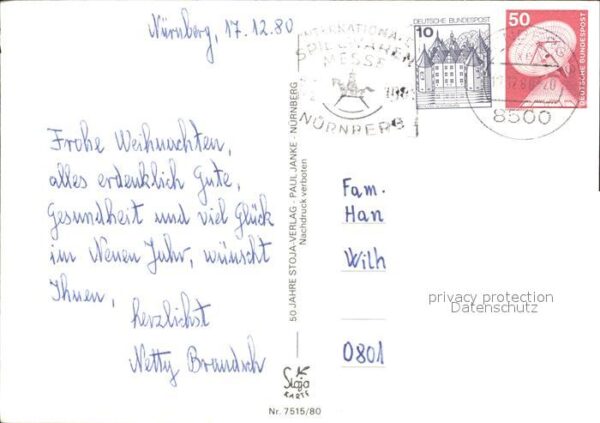 Nürnberg, 17.12.80
INTERNATIONALE
SPIELWAREN
MESSE
NÜRNBERG
10
DEUTSCHE BUNDESPOST
50
DEUTSCHE BUNDESPOST
8500
Frohe Weihnachten,
alles erdenklich Gute,
Gesundheit und viel Glück
im Neuen Jahr, wünscht
Ihnen,
herzlichst
Netty Brandsch
50 JAHRE STOJA-VERLAG · PAUL JANKE · NÜRNBERG
Nachdruck verboten
Fam.
Han
Wilh
0801
privacy protection
Datenschutz
Stoja
KARTE
Nr. 7515/80